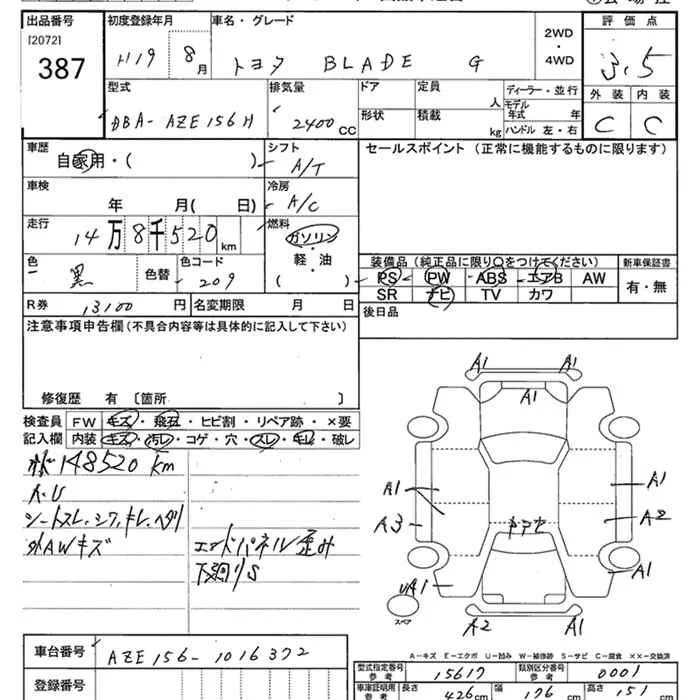 出品番号
[2072]
387
初度登録年月
H19 8月
車名・グレード
トヨタ BLADE G
2WD
・
4WD
評価点
3.5
外装 内装
C C
型式
DBA-AZE156H
排気量
2400 CC
ドア
形状
定員 人
積載 kg
ディーラー・並行
モデル
年式 年
ハンドル 左・右
車歴
自家用・( )
シフト
A/T
セールスポイント (正常に機能するものに限ります)
車検
年 月( 日)
冷房
A/C
走行
14万8千520km
燃料
ガソリン
・
軽・油
( )
色
黒
色替
色コード
209
装備品(純正品に限り○をつけてください)
PS PW ABS エアB AW
SR ナビ TV カワ
新車保証書
有・無
R券 13100円
名変期限 月 日
後日品
注意事項申告欄(不具合内容等は具体的に記入して下さい)
修復歴 有 〔箇所
検査員
記入欄
FW キズ・飛石・ヒビ割・リペア跡・×要
内装 キズ・汚レ・コゲ・穴・スレ・キレ・破レ
148520km
A.U
シートスレ、シワ、キレ、ヘタリ
外AWキズ
エンドパネル歪み
下廻りS
A1 A1
A1
A1
A3
A1
A2
A1
A2 A1
スペア
A-キズ E-エクボ U-凹み W-補修跡 S-サビ C-腐食 ××-交換済
車台番号
AZE156-1016372
登録番号
型式指定番号
参考
15617
類別区分番号
参考
0001
車庫証明用
参考
長さ 426cm
幅 176cm
高さ 151cm